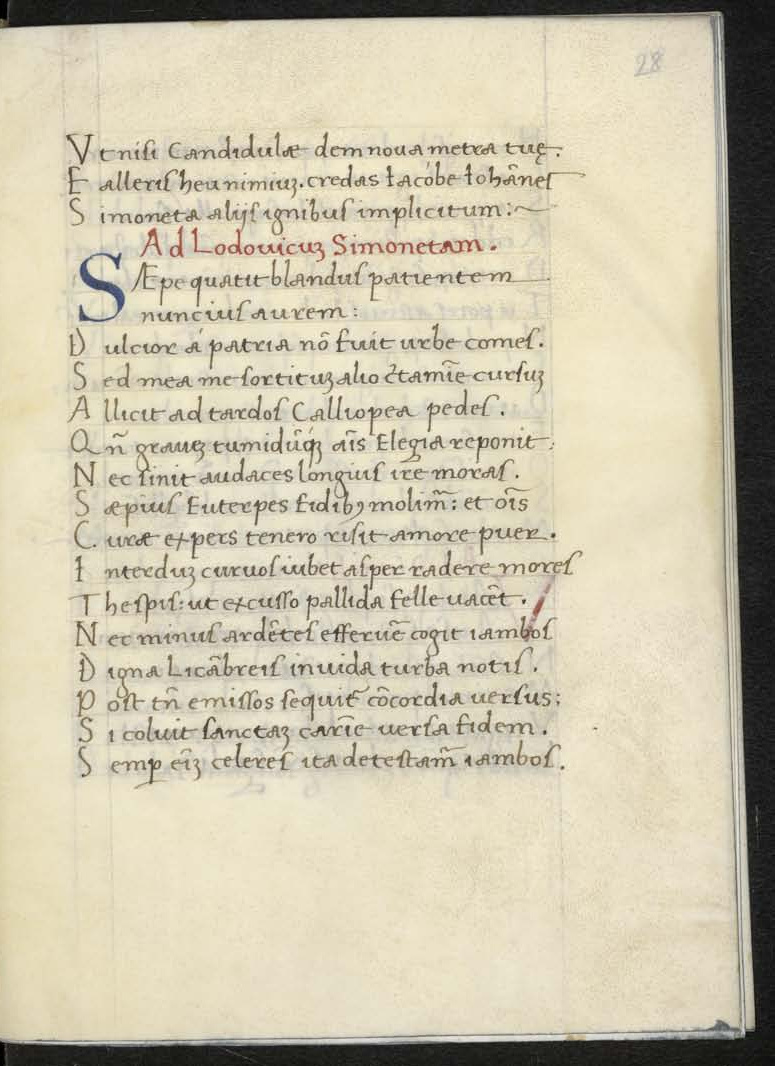 28
Vt nisi Candidulæ dem noua metra tuę.
Falleris heu nimiuꝫ. credas Iacóbe Iohānes
Simoneta alijs ignibus implicitum:~
Ad Lodouicuꝫ Simonetam.
SÆpe quatit blandus patientem
nuncius aurem:
Dulcior á patria nō fuit urbe comes.
Sed mea me sortituꝫ alio c̄tamīe cursuꝫ
Allicit ad tardos Calliopea pedes.
Qn̄ graueꝫ tumidūqꝫ aīs Elegia reponit:
Nec sinit audaces longius ire moras.
Sæpius Euterpes fidibꝰ molim̄: et oīs
Curæ expers tenero risit amore puer.
Interduꝫ curuos iubet asper radere mores
Thespis: ut excusso pallida felle uacēt.
Nec minus ardētes efferuē cogit iambos
Digna Licābreis inuida turba notis.
Post tn̄ emissos sequit᷑ cōcordia uersus:
Si coluit sanctaꝫ carīe uersa fidem.
Semꝑ eīꝫ celeres ita detestam̄ iambos.